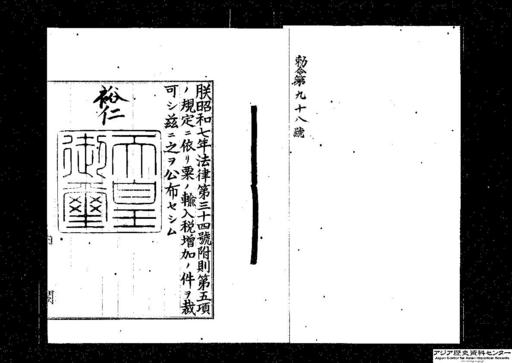 勅令第九十八號
朕昭和七年法律第三十四號附則第五項
ノ規定ニ依リ粟ノ輸入税増加ノ件ヲ裁
可シ茲ニ之ヲ公布セシム
裕仁
天皇
御璽
アジア歴史資料センター
Japan Center for Asian Historical Records